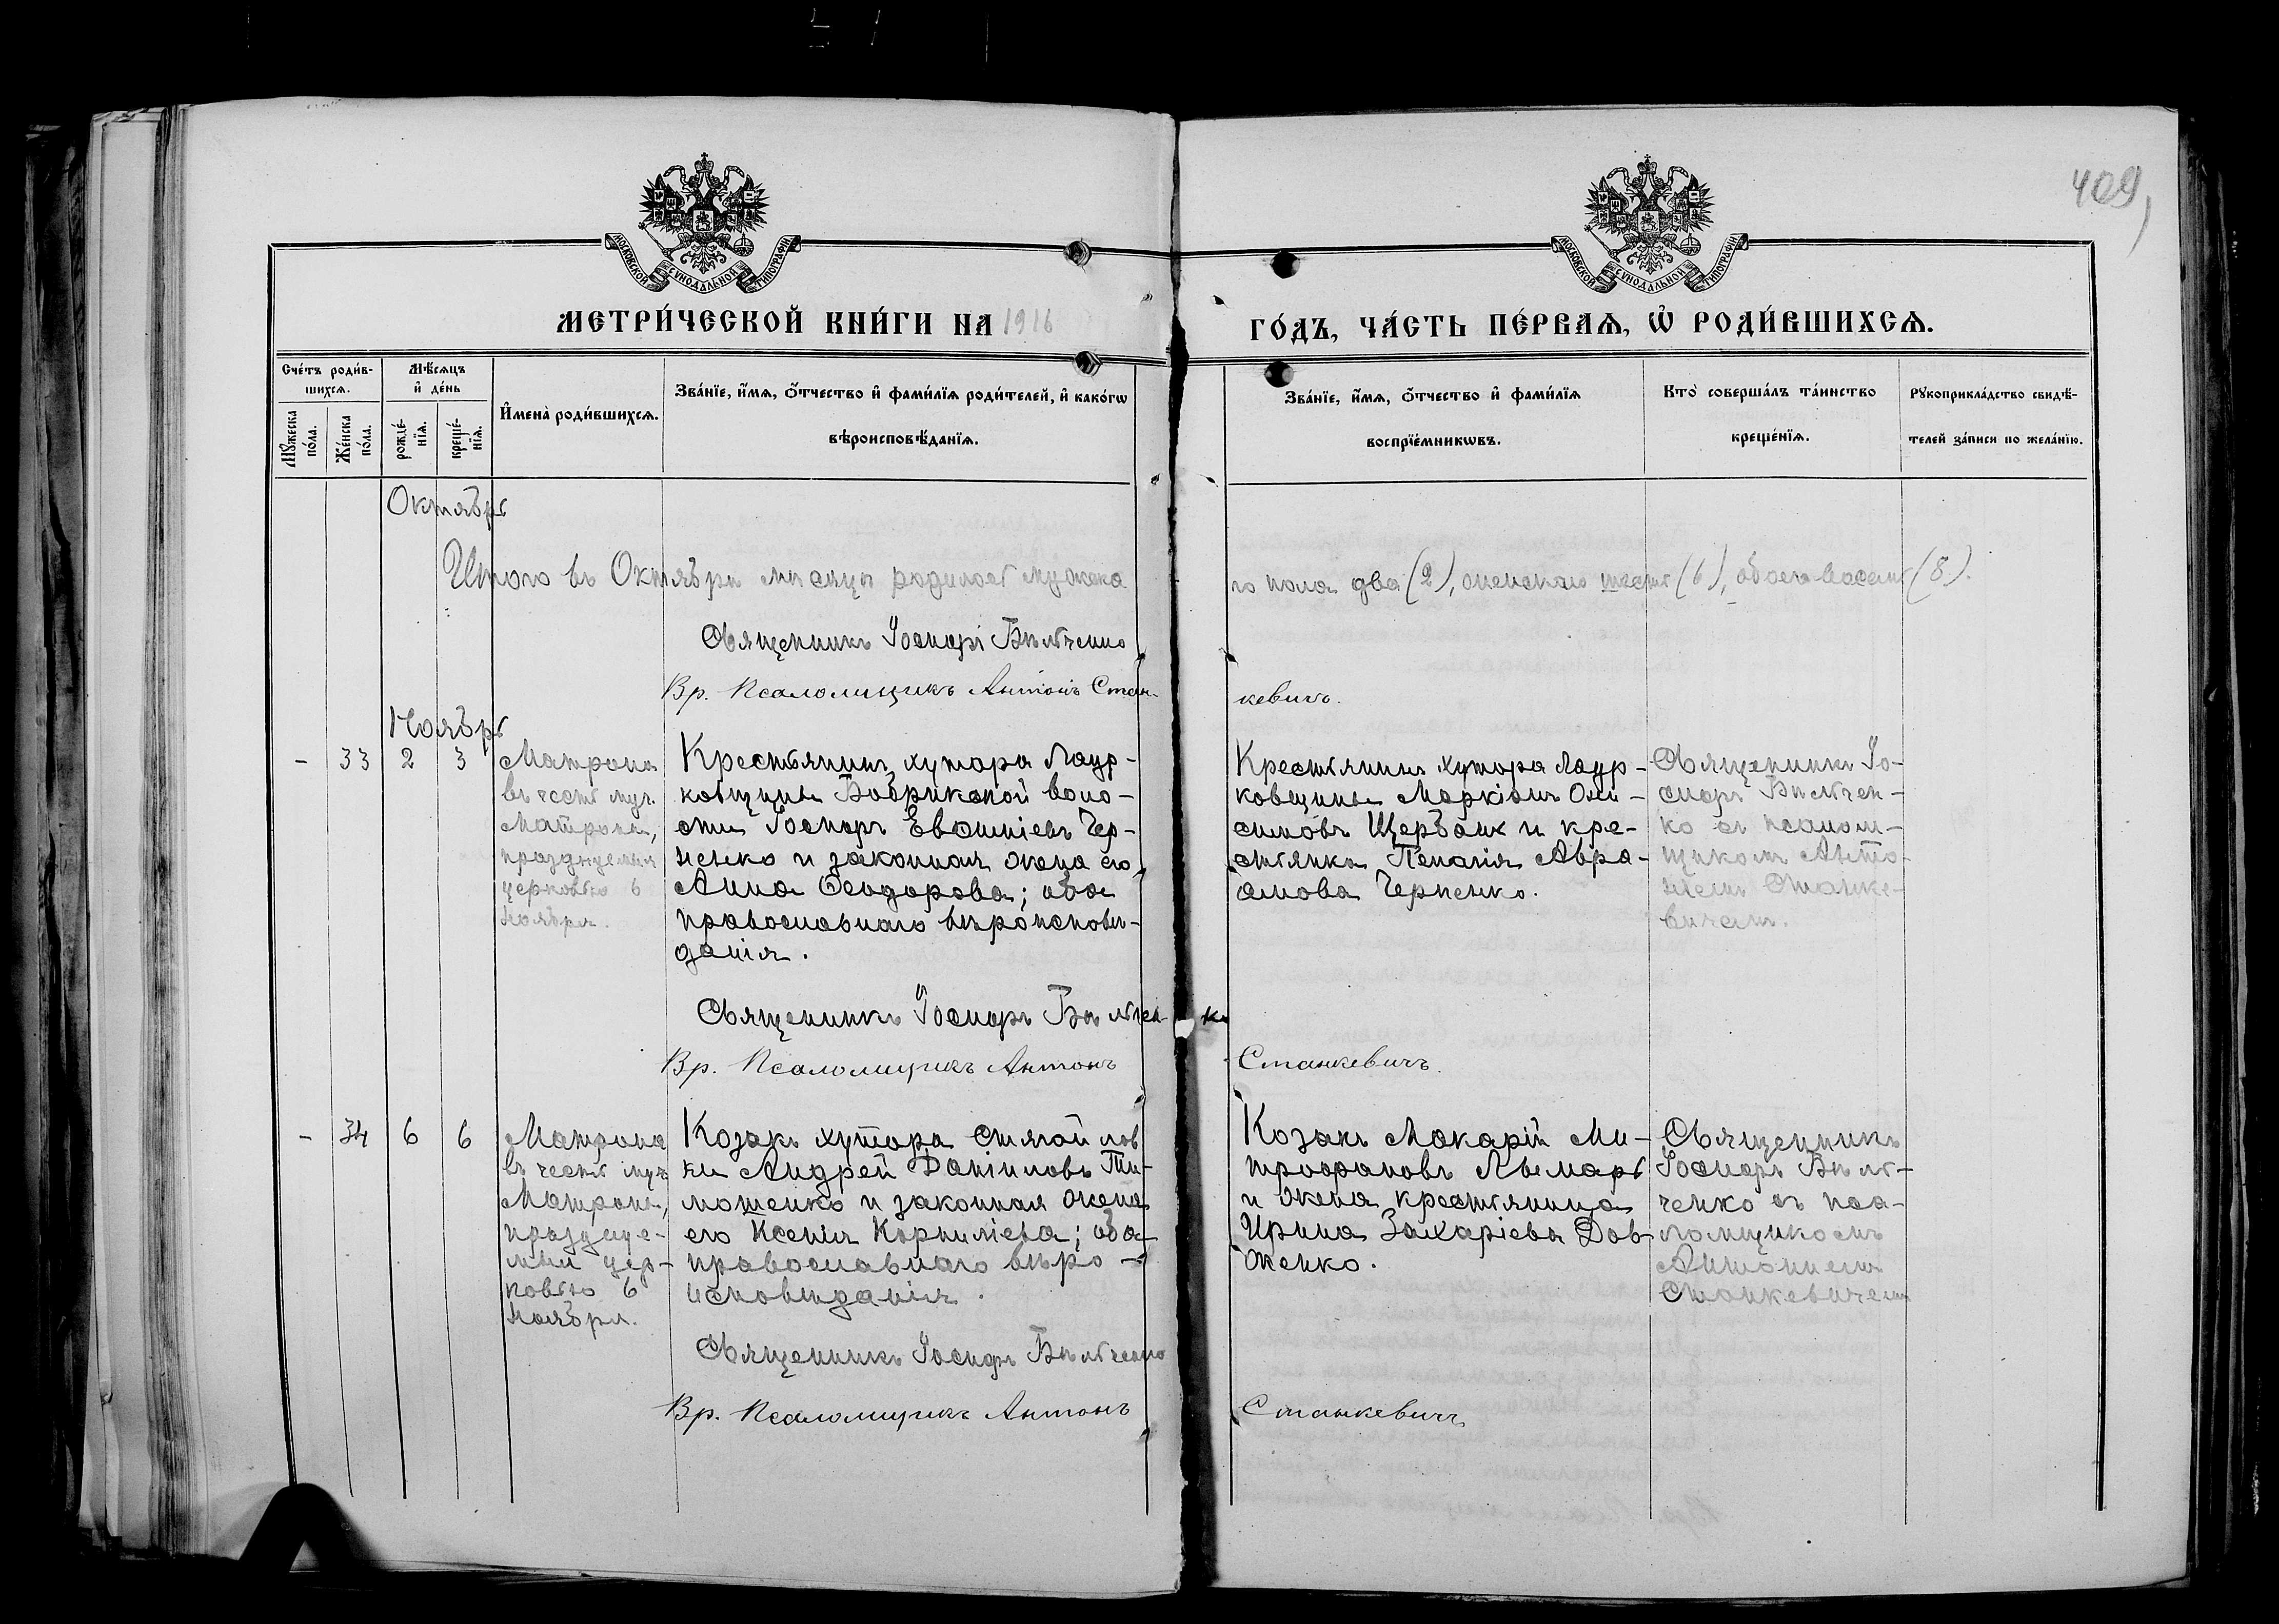 409,
МОСКОВСКОЙ СѴНОДАЛЬНОЙ ТИПОГРАФІИ
МОСКОВСКОЙ СѴНОДАЛЬНОЙ ТИПОГРАФІИ
МЕТРИ́ЧЕСКОЙ КНИ́ГИ НА 1916
ГО́ДЪ, ЧА́СТЬ ПЕ́РВАѦ, Ѿ РОДИ́ВШИХСѦ.
Сче́тъ роди́в-
шихсѧ.
Мѣ́сѧцъ
и҆ де́нь
И҆мена̀ роди́вшихсѧ.
Зва́нїе, и҆́мѧ, ѻ҆́тчество и҆ фами́лїѧ роди́телей, и҆ како́гѡ
вѣроисповѣ́данїѧ.
Мꙋ́жеска
по́ла.
Же́нска
по́ла.
рожде́-
нїѧ.
креще́-
нїѧ.
Зва́нїе, и҆́мѧ, ѻ҆́тчество и҆ фами́лїѧ
воспрїе́мникѡвъ.
Кто̀ соверша́лъ та́инство
креще́нїѧ.
Рꙋкоприкла́дство свидѣ́-
телей за́писи по жела́нїю.
Октябрь
Итого въ Октябрѣ мѣсяцѣ родилось мужска
го пола два (2), женскаго шесть (6), обоего восемь (8).
Священникъ Іосифъ Бѣльченко
Вр. Псаломщикъ Антонъ Стан-
кевичъ.
Ноябрь
- 33 2 3
Матрона
въ честь муч.
Матроны,
празднуемыя
церковью 6
Ноября.
Крестьянинъ хутора Лаур-
ковщины Бобрикской воло-
сти Іосифъ Евѳиміевъ Чер-
ненко и законная жена его
Анна Ѳеодорова; оба
православнаго вѣроисповѣ-
данія.
Крестьянинъ хутора Лаур-
ковщины Маркіанъ Они-
симовъ Щербакъ и кре-
стьянка Пелагія Авра-
амова Черненко.
Священникъ Іо-
сифъ Бѣльчен-
ко съ псалом-
щикомъ Анто-
ніемъ Станке-
вичемъ.
Священникъ Іосифъ Бѣльчен-ко
Вр. Псаломщикъ Антонъ
Станкевичъ.
- 34 6 6
Матрона
въ честь муч.
Матроны,
празднуе-
мыя цер-
ковью 6
Ноября.
Козакъ хутора
ки Андрей Даніиловъ Ти-
мошенко и законная жена
его Ксенія Корниліева; оба
православнаго вѣро-
исповѣданія.
Козакъ Макарій Ми-
трофановъ
и жена крестьянина
Ирина Захаріева Дов-
женко.
Священникъ
Іосифъ Бѣль-
ченко съ пса-
ломщикомъ
Антоніемъ
Станкевичемъ
Священникъ Іосифъ Бѣльченко
Вр. Псаломщикъ Антонъ
Станкевичъ